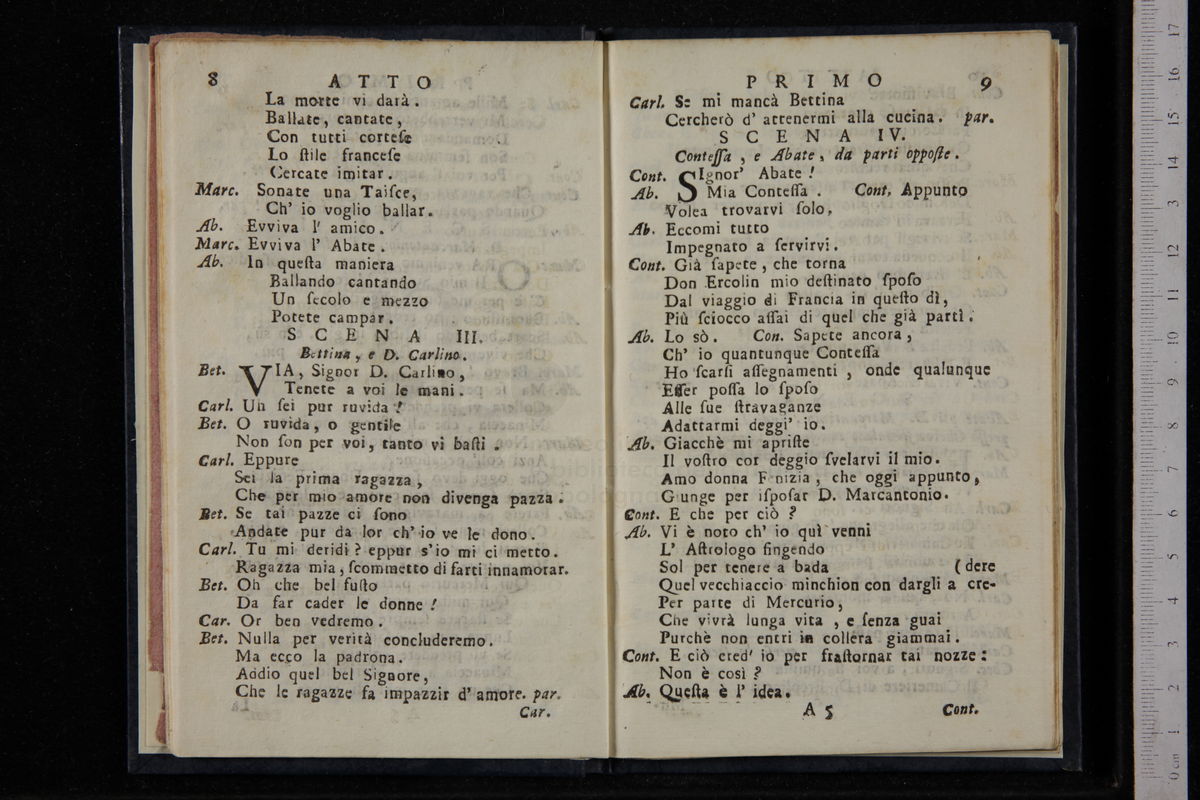 8 ATTO
La morte vi darà.
Ballate, cantate,
Con tutti corteſe
Lo ſtile franceſe
Cercate imitar.
Marc. Sonate una Taiſce,
Ch' io voglio ballar.
Ab. Evviva l' amico.
Marc. Evviva l' Abate.
Ab. In queſta maniera
Ballando cantando
Un ſecolo e mezzo
Potete campar.
SCENA III.
Bettina, e D. Carlino.
Bet. VIA, Signor D. Carlino,
Tenete a voi le mani.
Carl. Uh ſei pur ruvida!
Bet. O ruvida, o gentile
Non ſon per voi, tanto vi baſti.
Carl. Eppure
Sei la prima ragazza,
Che per mio amore non divenga pazza.
Bet. Se tai pazze ci ſono
Andate pur da lor ch' io ve le dono.
Carl. Tu mi deridi? eppur s'io mi ci metto.
Ragazza mia, ſcommetto di farti innamorar.
Bet. Oh che bel fuſto
Da far cader le donne!
Car. Or ben vedremo.
Bet. Nulla per verità concluderemo.
Ma ecco la padrona.
Addio quel bel Signore,
Che le ragazze fa impazzir d' amore. par.
Car.
PRIMO 9
Carl. Se mi mancà Bettina
Cercherò d' attenermi alla cucina. par.
SCENA IV.
Conteſſa, e Abate, da parti oppoſte.
Cont. SIgnor' Abate!
Ab. Mia Conteſſa. Cont. Appunto
Volea trovarvi ſolo.
Ab. Eccomi tutto
Impegnato a ſervirvi.
Cont. Già ſapete, che torna
Don Ercolin mio deſtinato ſpoſo
Dal viaggio di Francia in queſto dì,
Più ſciocco aſſai di quel che già partì.
Ab. Lo sò. Con. Sapete ancora,
Ch' io quantunque Conteſſa
Ho ſcarſi aſſegnamenti, onde qualunque
Eſſer poſſa lo ſpoſo
Alle ſue ſtravaganze
Adattarmi deggi' io.
Ab. Giacchè mi apriſte
Il voſtro cor deggio ſvelarvi il mio.
Amo donna Fenizia, che oggi appunto,
Giunge per iſpoſar D. Marcantonio.
Cont. E che per ciò?
Ab. Vi è noto ch' io quì venni
L' Aſtrologo fingendo
Sol per tenere a bada (dere
Quel vecchiaccio minchion con dargli a cre-
Per parte di Mercurio,
Che vivrà lunga vita, e ſenza guai
Purchè non entri in collera giammai.
Cont. E ciò cred' io per fraſtornar tai nozze:
Non è così?
Ab. Queſta è l' idea.
A 5 Cont.